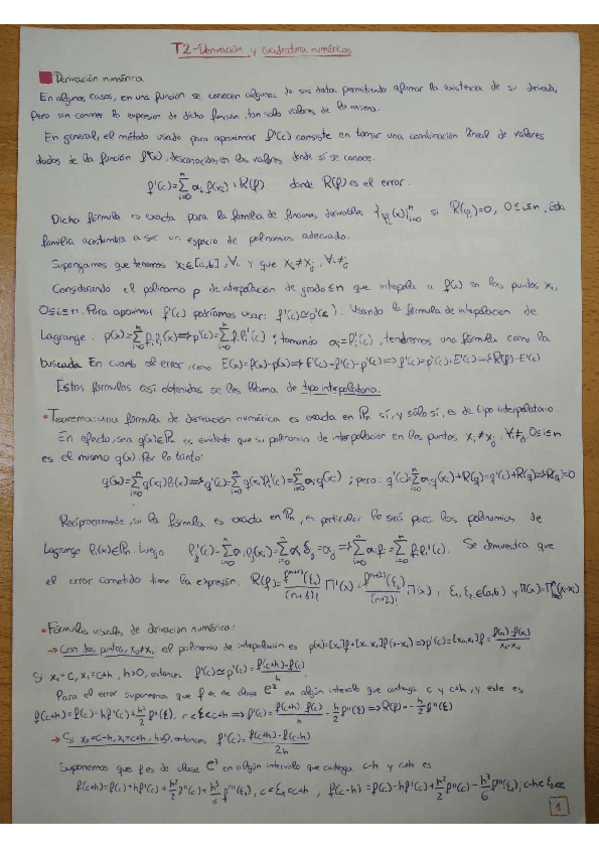 T2-Derivación y cuadratura numéricas
Derivación numérica
En algunos casos, en una función se conocen algunos de sus datos permitiendo afirmar la existencia de su derivada,
pero sin conocer la expresión de dicha función, tan solo valores de la misma.
En general, el método usado para aproximar f'(c) consiste en tomar una combinación lineal de valores
dados de la función f(x), desconocida, en los valores donde sí se conoce.
f'(c)=∑_{i=0}^{n} α_i f(x_i)+R(f) donde R(f) es el error.
Dicha fórmula es exacta para la familia de funciones derivables {φ_i(x)}_{i=0}^{n} si R(φ_i)=0, 0≤i≤n. Esta
familia acostumbra a ser un espacio de polinomios adecuado.
Supongamos que tenemos x_i∈[a,b], ∀i y que x_i≠x_j, ∀i≠j
Considerando el polinomio p de interpolación de grado≤n que interpola a f(x) en los puntos x_i,
0≤i≤n. Para aproximar f'(c) podríamos usar: f'(c)≃p'(c). Usando la fórmula de interpolación de
Lagrange: p(x)=∑_{i=0}^{n} f_i l_i(x)=>p'(c)=∑_{i=0}^{n} f_i l_i'(c); tomando α_i=l_i'(c), tendremos una fórmula como la
buscada. En cuanto al error, como E(x)=f(x)-p(x)=>E'(c)=f'(c)-p'(c)=>f'(c)=p'(c)+E'(c)=>R(f)=E'(c)
Estas fórmulas así obtenidas se les llama de tipo interpolatorio.
•Teorema: una fórmula de derivación numérica es exacta en Pn sí, y sólo sí, es de tipo interpolatorio.
En efecto, sea q(x)∈Pn es evidente que su polinomio de interpolación en los puntos x_i≠x_j, ∀i≠j 0≤i≤n
es el mismo q(x). Por lo tanto:
q(x)=∑_{i=0}^{n} q(x_i)l_i(x)=>q'(c)=∑_{i=0}^{n} q(x_i)l_i'(c)=∑_{i=0}^{n} α_i q(x_i); pero: q'(c)=∑_{i=0}^{n} α_i q(x_i)+R(q)=q'(c)+R(q)=>R(q)=0
Recíprocamente, si la fórmula es exacta en Pn, en particular lo será para los polinomios de
Lagrange l_i(x)∈Pn. Luego l_j'(c)=∑_{i=0}^{n} α_i l_j(x_i)=∑_{i=0}^{n} α_i δ_ij=α_j=>∑_{i=0}^{n} α_i f_i=∑_{i=0}^{n} f_i l_i'(c). Se demuestra que
el error cometido tiene la expresión. R(f)=f^{(n+1)}(ξ_1)/(n+1)! Π'(x)+f^{(n+2)}(ξ_2)/(n+2)! Π(x), ξ_1,ξ_2∈(a,b) y Π(x)=∏_{i=0}^{n}(x-x_i)
•Fórmulas usuales de derivación numérica:
→Con dos puntos, x_0≠x_1, el polinomio de interpolación es p(x)=[x_0]f+[x_0,x_1]f(x-x_0)=>p'(c)=[x_0,x_1]f=f(x_1)-f(x_0)/x_1-x_0
Si x_0=c, x_1=c+h, h>0, entonces f'(c)≃p'(c)=f(c+h)-f(c)/h
Para el error suponemos que f es de clase e² en algún intervalo que contenga c y c+h, y este es
f(c+h)=f(c)+hf'(c)+h²/2 f''(ξ), c<ξ<c+h=>f'(c)=f(c+h)-f(c)/h-h/2 f''(ξ)=>R(f)=-h/2 f''(ξ)
→Si x_0=c-h, x_1=c+h, h>0, entonces f'(c)=f(c+h)-f(c-h)/2h
Suponemos que f es de clase e³ en algún intervalo que contenga c-h y c+h es
f(c+h)=f(c)+hf'(c)+h²/2 f''(c)+h³/6 f'''(ξ_1), c<ξ_1<c+h, f(c-h)=f(c)-hf'(c)+h²/2 f''(c)-h³/6 f'''(ξ_2); c-h<ξ_2<c
1